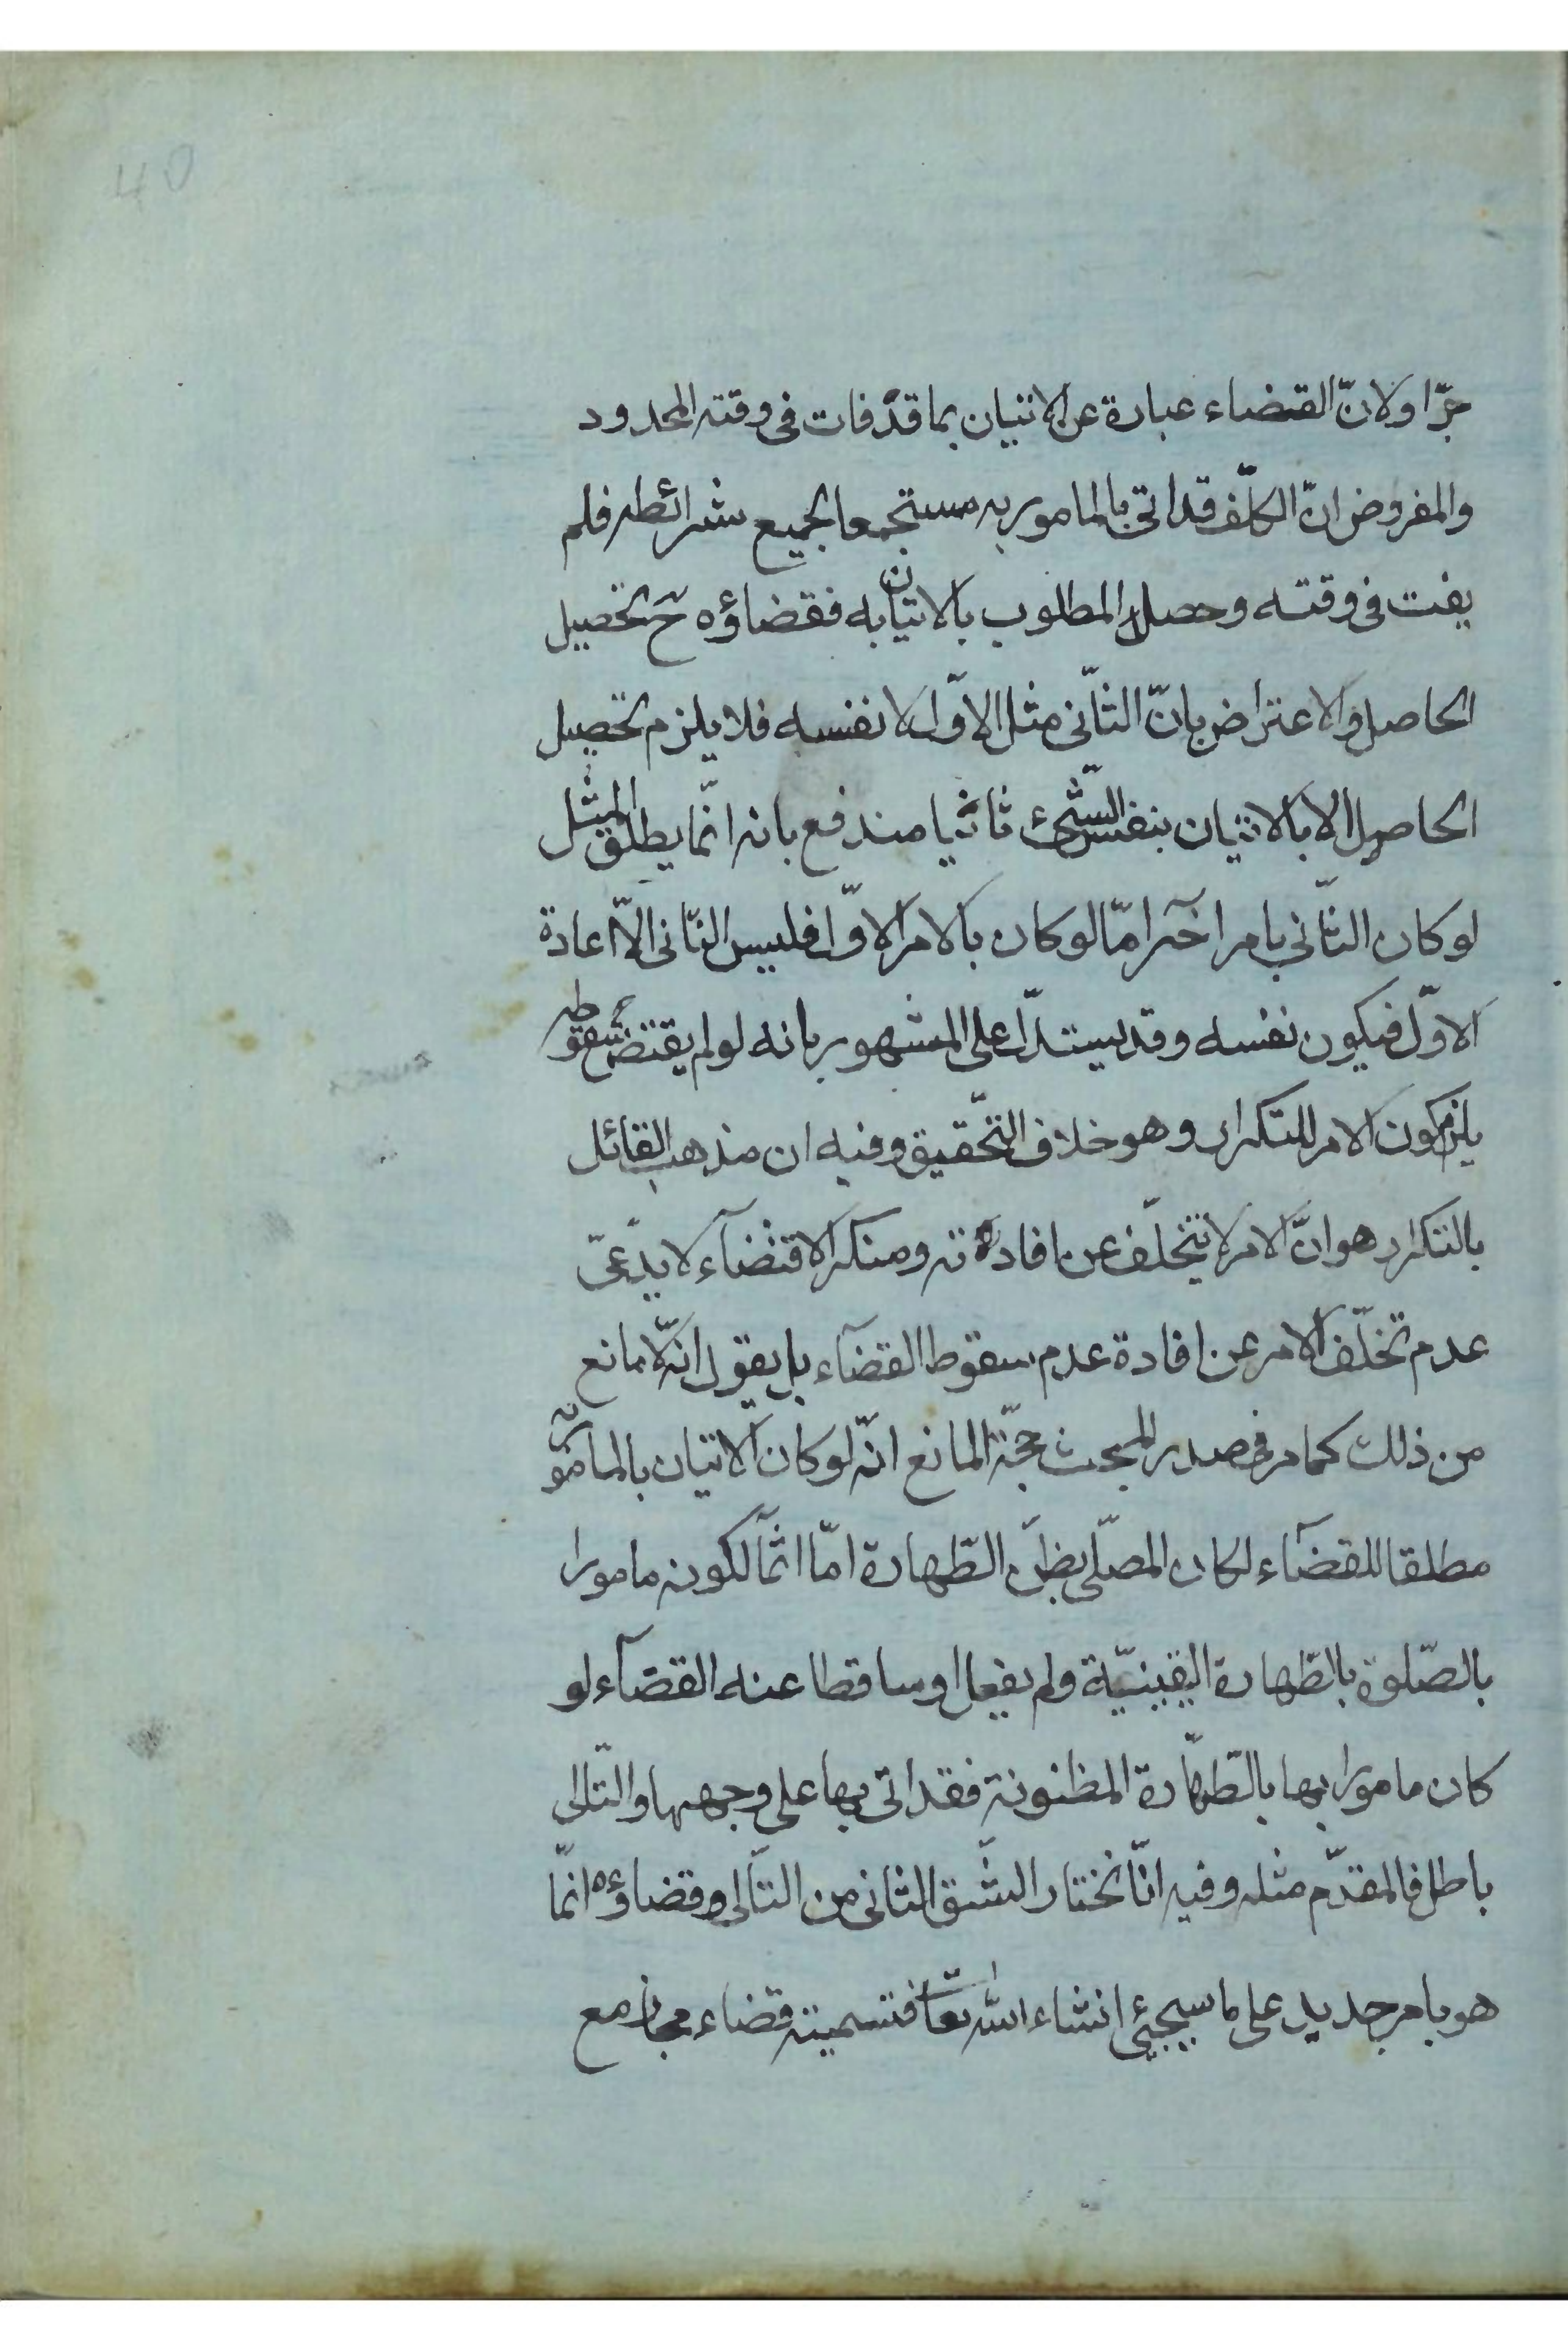 40
جرّا ولانّ القضاء عبارة عن الاتيان بما قد فات فى وقته المحدود
والمفروض انّ المكلّف قد اتى بالمامور به مستجمعا لجميع شرائطه فلم
يفت فى وقته وحصل المطلوب بالاتيان به فقضاؤه ح تحصيل
الحاصل والاعتراض بانّ الثّانى مثل الاوّل لا نفسه فلا يلزم تحصيل
الحاصل الا بالاتيان بنفس الشّئ ثانيا مندفع بانه انّما يطلق المثل
لو كان الثّانى بامر آخر امّا لو كان بالامر الاوّل فليس الثّانى الّا اعادة
الاوّل فيكون نفسه وقد يستدلّ على المشهور بانه لو لم يقتض سقوطه
يلزم كون الامر للتكرار وهو خلاف التّحقيق وفيه ان مذهب القائل
بالتكرار هو انّ الامر لا يتخلّف عن افادته ومنكر الاقتضآء لا يدّعى
عدم تخلّف الامر عن افادة عدم سقوط القضآء بل يقول انّه لا مانع
من ذلك كما مر فى صدر المبحث حجّة المانع انّه لو كان الاتيان بالمامور به
مطلقا للقضآء لكان المصلّى بظنّ الطّهارة امّا اثمآ لكونه مامورا
بالصّلوة بالطّهارة اليقينيّة ولم يفعل او ساقطا عنه القضآء لو
كان مامورا بها بالطّهارة المظنونة فقد اتى بها على وجهها والتّالى
باطل فالمقدّم مثله وفيه انّا نختار الشّق الثانى من التّالى وقضاؤه انّما
هو بامر جديد على ما سيجئ انشاء الله تعا فتسميته قضاء مجاز مع